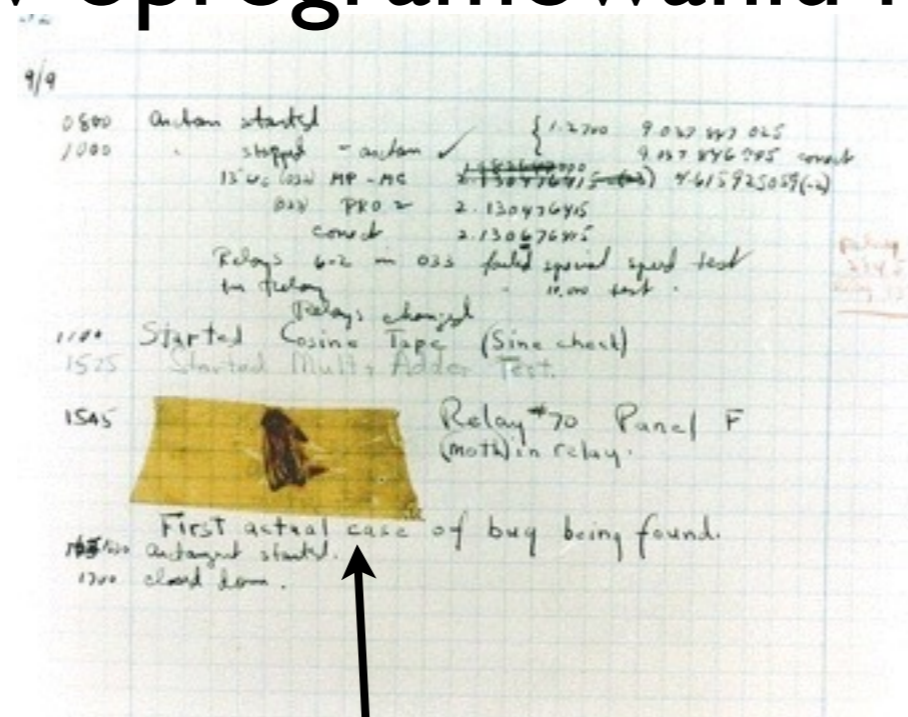 oprogramowania
9/9
0800 Antan started
1000 " stopped - antan ✓ { 1.2700 9.037 847 025
9.037 846 995 correct
13"uc (032) MP - MC 2.130476415 4.615925059(-2)
(033) PRO 2 2.130476415
correct 2.130676415
Relays 6-2 in 033 failed special speed test
in relay " 10.000 test.
Relays changed
1100 Started Cosine Tape (Sine check)
1525 Started Mult + Adder Test.
1545 Relay #70 Panel F
(moth) in relay.
First actual case of bug being found.
1630 antangent started.
1700 closed down.